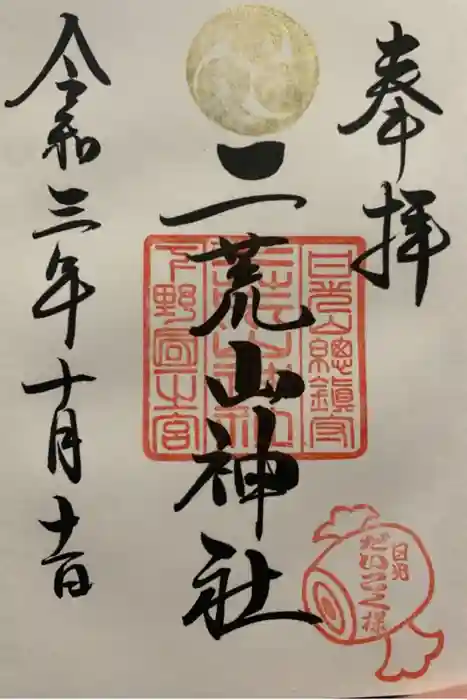 奉拝
日光山總鎮守
二荒山神社
二荒山神社
下野國一之宮
日光
だいこく様
令和三年十月十一日